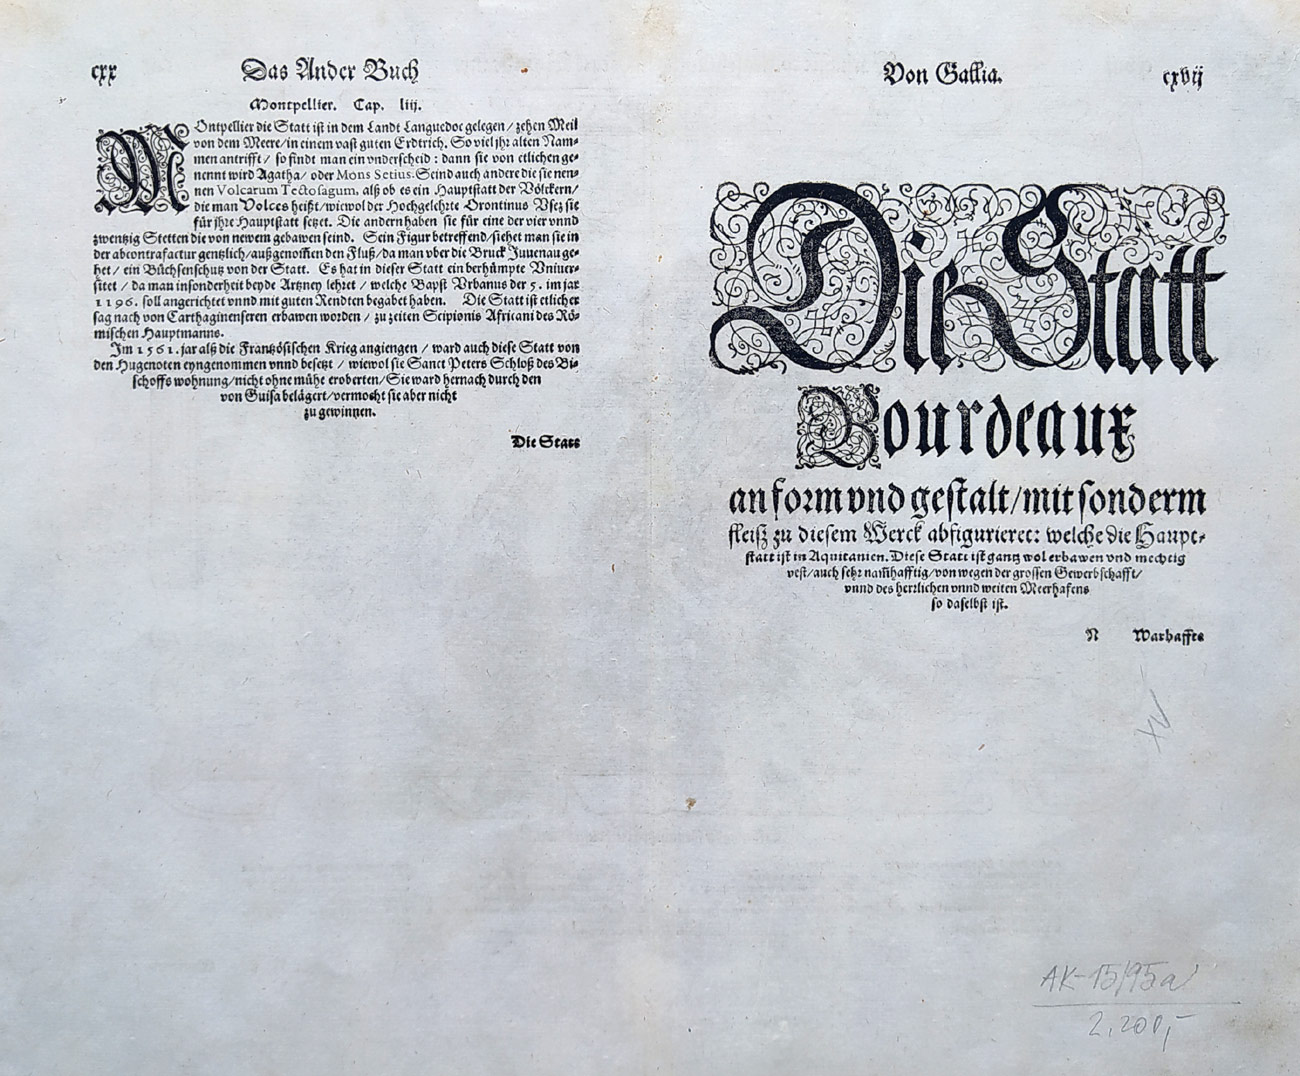 cxx Das Ander Buch
Montpellier. Cap. liij.
MOntpellier die Statt ist in dem Landt Languedoc gelegen / zehen Meil
von dem Meere / in einem vast guten Erdtrich. So viel jhr alten Nam-
men antrifft / so findt man ein vnderscheid : dann sie von etlichen ge-
nennt wird Agatha / oder Mons Setius. Seind auch andere die sie nen-
nen Volcarum Tectosagum, alß ob es ein Hauptstatt der Völckern /
die man Volces heißt / wiewol der Hochgelehrte Orontinus Vsez sie
für jhre Hauptstatt setzet. Die andern haben sie für eine der vier vnnd
zwentzig Stetten die von newem gebawen seind. Sein Figur betreffend / siehet man sie in
der abcontrafactur gentzlich / außgenom̃en den Fluß / da man vber die Bruck Juuenau ge-
het / ein Büchsenschutz von der Statt. Es hat in dieser Statt ein berhümpte Vniuer-
sitet / da man insonderheit beyde Artzney lehret / welche Bapst Vrbanus der 5. im jar
1196. soll angerichtet vnnd mit guten Rendten begabet haben. Die Statt ist etlicher
sag nach von Carthaginenseren erbawen worden / zu zeiten Scipionis Africani des Rö-
mischen Hauptmanns.
Im 1561. jar alß die Frantzösischen Krieg angiengen / ward auch diese Statt von
den Hugenoten eyngenommen vnnd besetzt / wiewol sie Sanct Peters Schloß des Bi-
schoffs wohnung / nicht ohne mühe eroberten / Sie ward hernach durch den
von Guisa belägert / vermocht sie aber nicht
zu gewinnen.
Die Statt
Von Gallia. cxvij
Die Statt
Bourdeaux
an form vnd gestalt / mit sonderm
fleisz zu diesem Werck abfiguriert: welche die Haupt-
statt ist in Aquitanien. Diese Statt ist gantz wol erbawen vnd mechtig
vest / auch sehr nam̃hafftig / von wegen der grossen Gewerbschafft /
vnnd des herrlichen vnnd weiten Meerhafens
so daselbst ist.
N Warhaffte
AK-15/95a
2.200,-